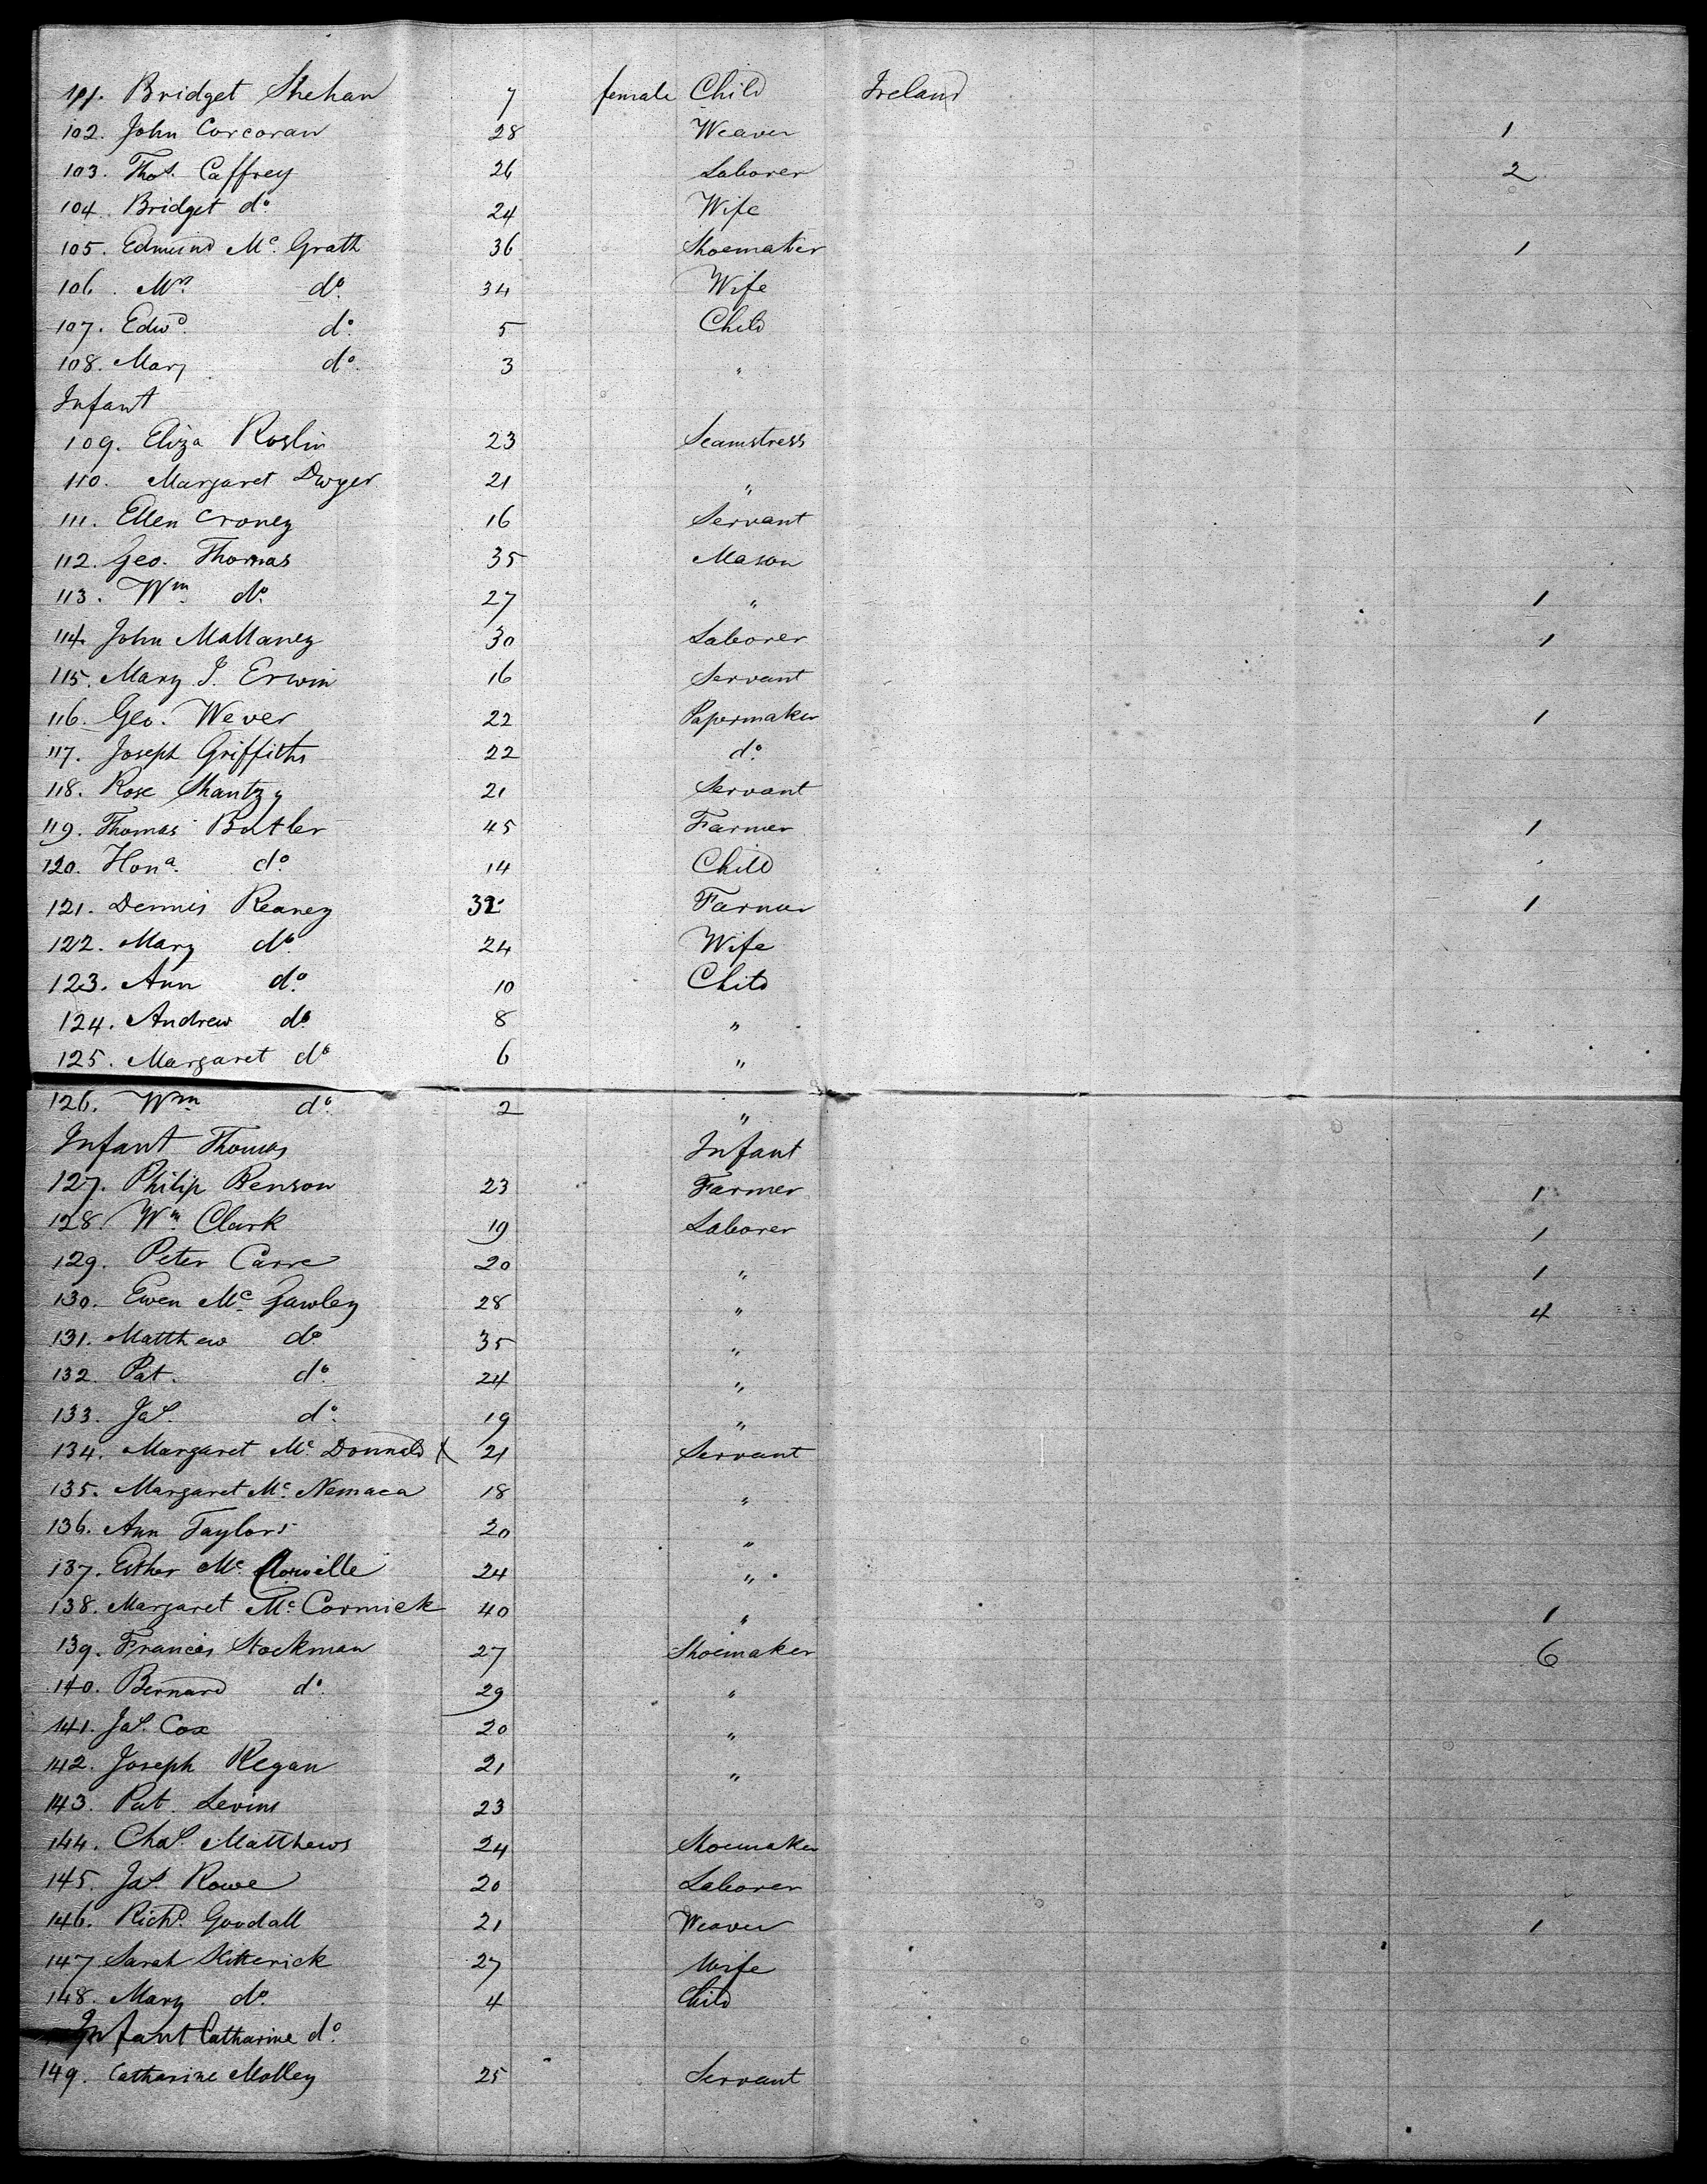 101. Bridget Shehan 7 female Child Ireland
102. John Corcoran 28 Weaver 1
103. Thos. Caffrey 26 Laborer 2
104. Bridget do. 24 Wife
105. Edmund Mc. Grath 36 Shoemaker 1
106. Mrs. do. 34 Wife
107. Edwd. do. 5 Child
108. Mary do. 3 "
Infant
109. Eliza Roslin 23 Seamstress
110. Margaret Dwyer 21 "
111. Ellen Croney 16 Servant
112. Geo. Thomas 35 Mason
113. Wm. do. 27 " 1
114. John Mallaney 30 Laborer 1
115. Mary J. Erwin 16 Servant
116. Geo. Wever 22 Papermaker 1
117. Joseph Griffiths 22 do.
118. Rose 21 Servant
119. Thomas Butler 45 Farmer 1
120. Hona. do. 14 Child
121. Dennis Reaney 32 Farmer 1
122. Mary do. 24 Wife
123. Ann do. 10 Child
124. Andrew do. 8 "
125. Margaret do. 6 "
126. Wm. do. 2 "
Infant Thomas Infant
127. Philip Benson 23 Farmer 1
128. Wm. Clark 19 Laborer 1
129. Peter Carre 20 " 1
130. Ewen Mc. Gawley 28 " 4
131. Matthew do. 35 "
132. Pat. do. 24 "
133. Jas. do. 19 "
134. Margaret Mc. Donnald X 21 Servant
135. Margaret Mc. Nemaca 18 "
136. Ann Taylor 20 "
137. Esther Mc. 24 "
138. Margaret Mc. Cormick 40 " 1
139. Francis Stockman 27 Shoemaker 6
140. Bernard do. 29 "
141. Jas. Cox 20 "
142. Joseph Regan 21 "
143. Pat. Levins 23
144. Chas. Matthews 24 Shoemaker
145. Jas. Rowe 20 Laborer
146. Richd. Goodall 21 Weaver 1
147 Sarah Kitterick 27 Wife
148. Mary do. 4 Child
Infant Catharine do.
149. Catharine Molley 25 Servant